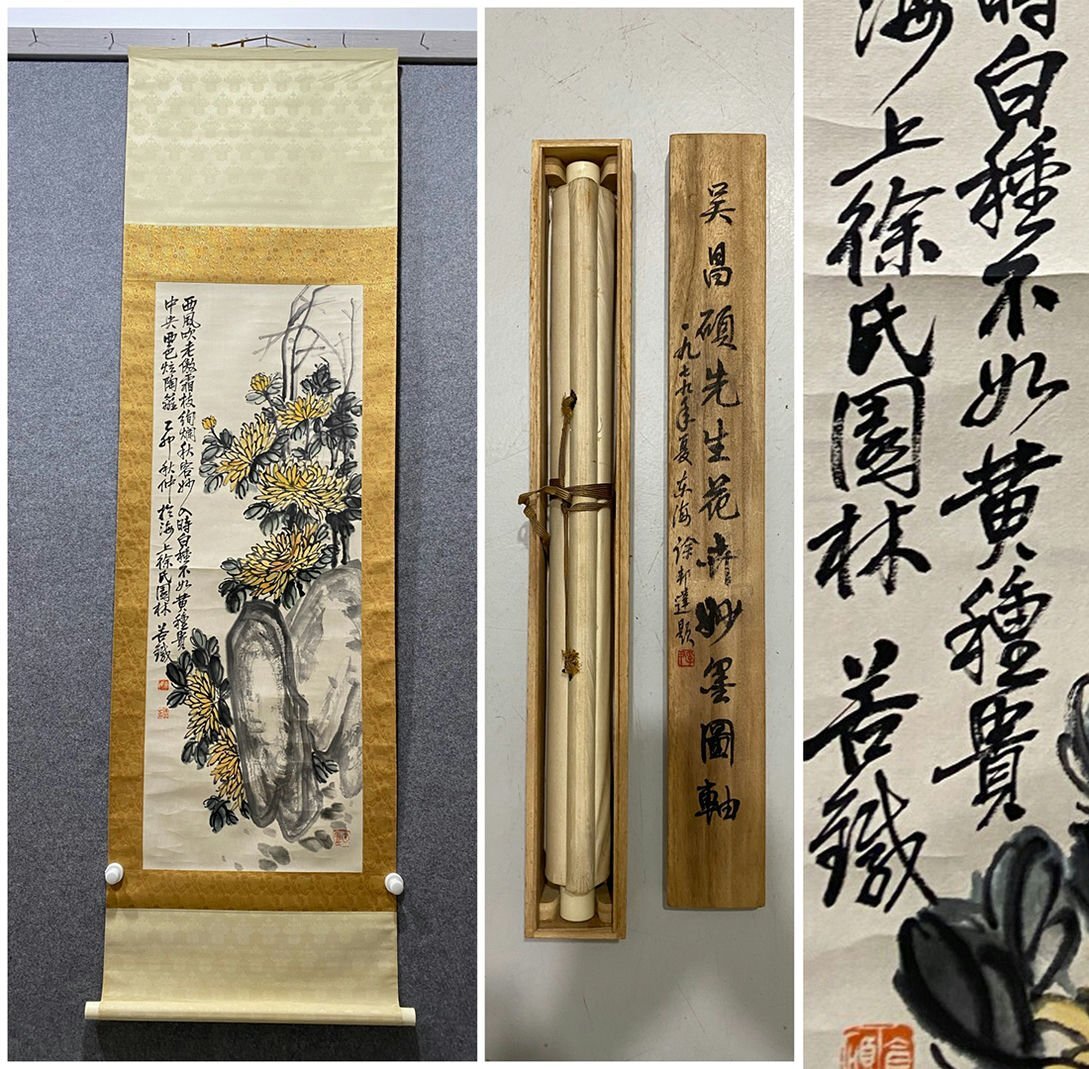 西風吹老傲霜枝絢爛秋容妙入時白種不如黃種貴
中央正色炫陶籬 乙卯秋仲於海上徐氏園林 苦鐵
吴昌碩先生花卉妙墨圖軸
一九七九年夏 东海徐邦達題
時白種不如黃種貴
海上徐氏園林 苦鐵